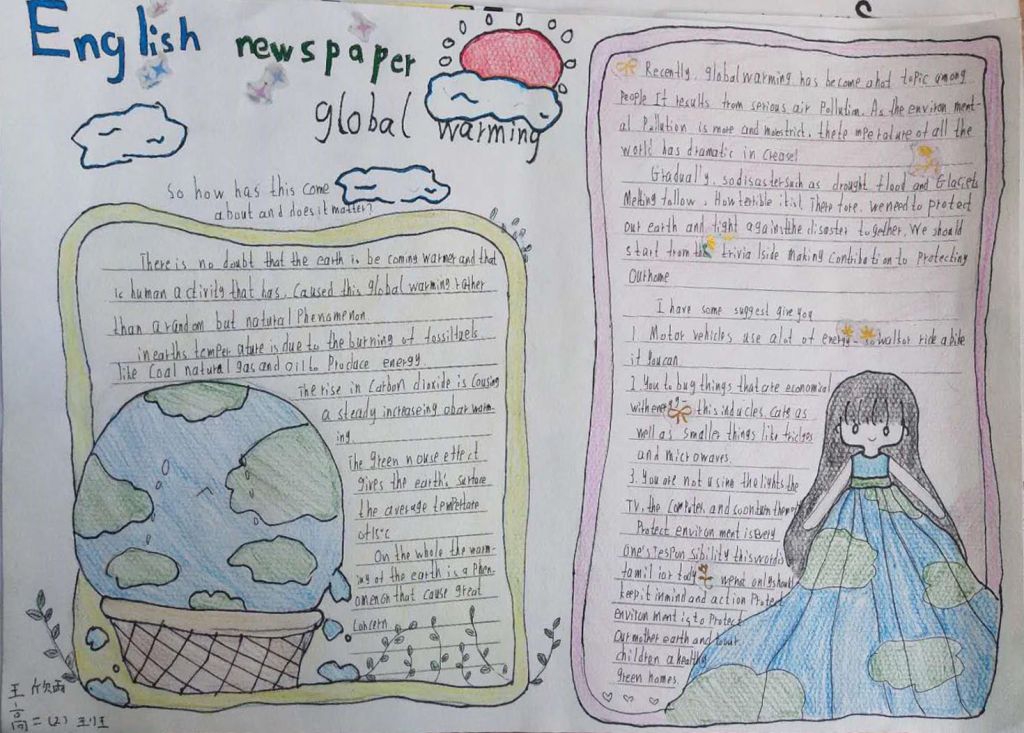 English newspaper
global warming
So how has this come
about and does it matter?
There is no doubt that the earth is be coming warmer and that
is human activity that has. Caused this global warming rather
than a random but natural Phenomenon
in earths temper ature is due to the burning of fossilfuels
like Coal natural gas and oil to Produce energy
The rise in Carbon dioxide is Cousing
a steady increaseing obar warm-
ing.
The green nouse effect
gives the earth's surface
the average tempertare
of 15°c
On the whole the warm-
ing of the earth is a Phen-
omenon that cause great
Concern
Recently, global warming has become a hot topic among
People It results from serious air Pollution. As the environ ment-
al Pullution is more and more strict, the te mperature of all the
world has dramatic in crease!
Gradually, so disaster such as drought flood and Glaciets
Melting follow, How terrible it is!, There fore, we need to protect
our earth and fight against the disaster together. We should
start from the trivia lside making Contribution to Protecting
Our home
I have some suggest give you
1. Motor vehicles use a lot of energy- so walk or ride a bike
if you can
2. You to buy things that are economical
with energy- this inducles cars as
well as smaller things like fridges
and microwaves.
3. You are not using the lights the
TV, the Computer, and so on turn them
Protect environ ment is every
one's respon sibility this word is
familiar today we not only should
keep it in mind and action Protect
environ ment is to Protect
Our mother earth and to our
children a healthy
green homes.
王欣雨
高二(2) 班